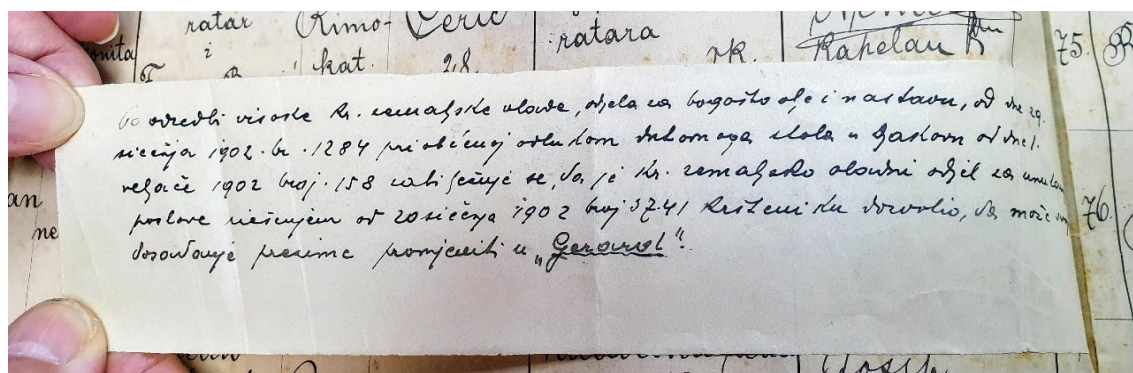 ratar Rimo- Ceric
i kat. 28. ratara rk. Kapelan 75.
Po odredbi visoke kr. zemaljske vlade, odjela za bogoštovlje i nastavu, od dne 29.
siečnja 1902. br. 1284 priobćenoj odlukom duhovnoga stola u Djakovu od dne 1.
veljače 1902 broj 158 zabilježuje se, da je kr. zemaljske vladni odjel za unutarnje
poslove riešenjem od 20 siečnja 1902 broj 3741 kršteniku dozvolio, da može
dosadanje prezime promjeniti u „Gerard".
76.
Josip